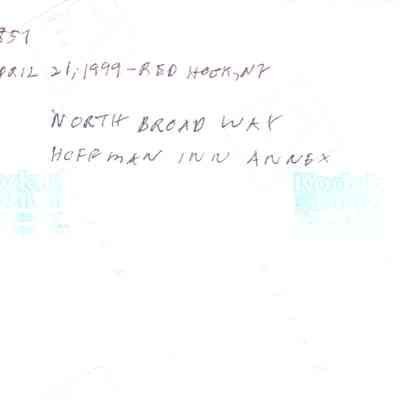 857
PRIL 21, 1999-RED HOOK, NY
NORTH BROADWAY
HOFFMAN INN ANNEX
Kodak